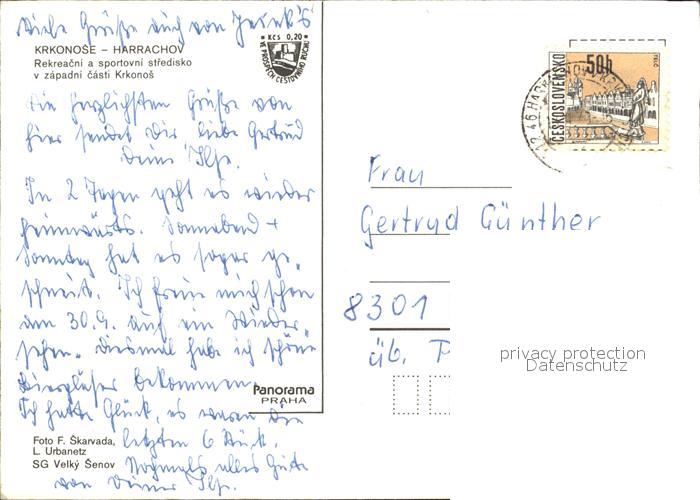 Viele Grüße auch von
KRKONOŠE – HARRACHOV
Rekreační a sportovní středisko
v západní části Krkonoš
Kčs 0,20
VE PROSPĚCH CESTOVNÍHO RUCHU
Die herzlichsten Grüße von
hier sendet Dir, liebe Gertrud
Deine Ilse.
In 2 Tagen geht es wieder
heimwärts. Sonnabend +
Sonntag hat es sogar ge-
schneit. Ich freue mich schon
am 30.9. auf ein Wieder-
sehen. Diesmal habe ich schöne
Biergläser bekommen.
Ich hatte Glück, es waren die
letzten 6 Stück.
Nochmals alles Gute
von Deiner Ilse.
Foto F. Škarvada,
L. Urbanetz
SG Velký Šenov
Panorama
PRAHA
ČESKOSLOVENSKO
50h
TELČ
Frau
Gertryd Günther
8301
üb. P
privacy protection
Datenschutz